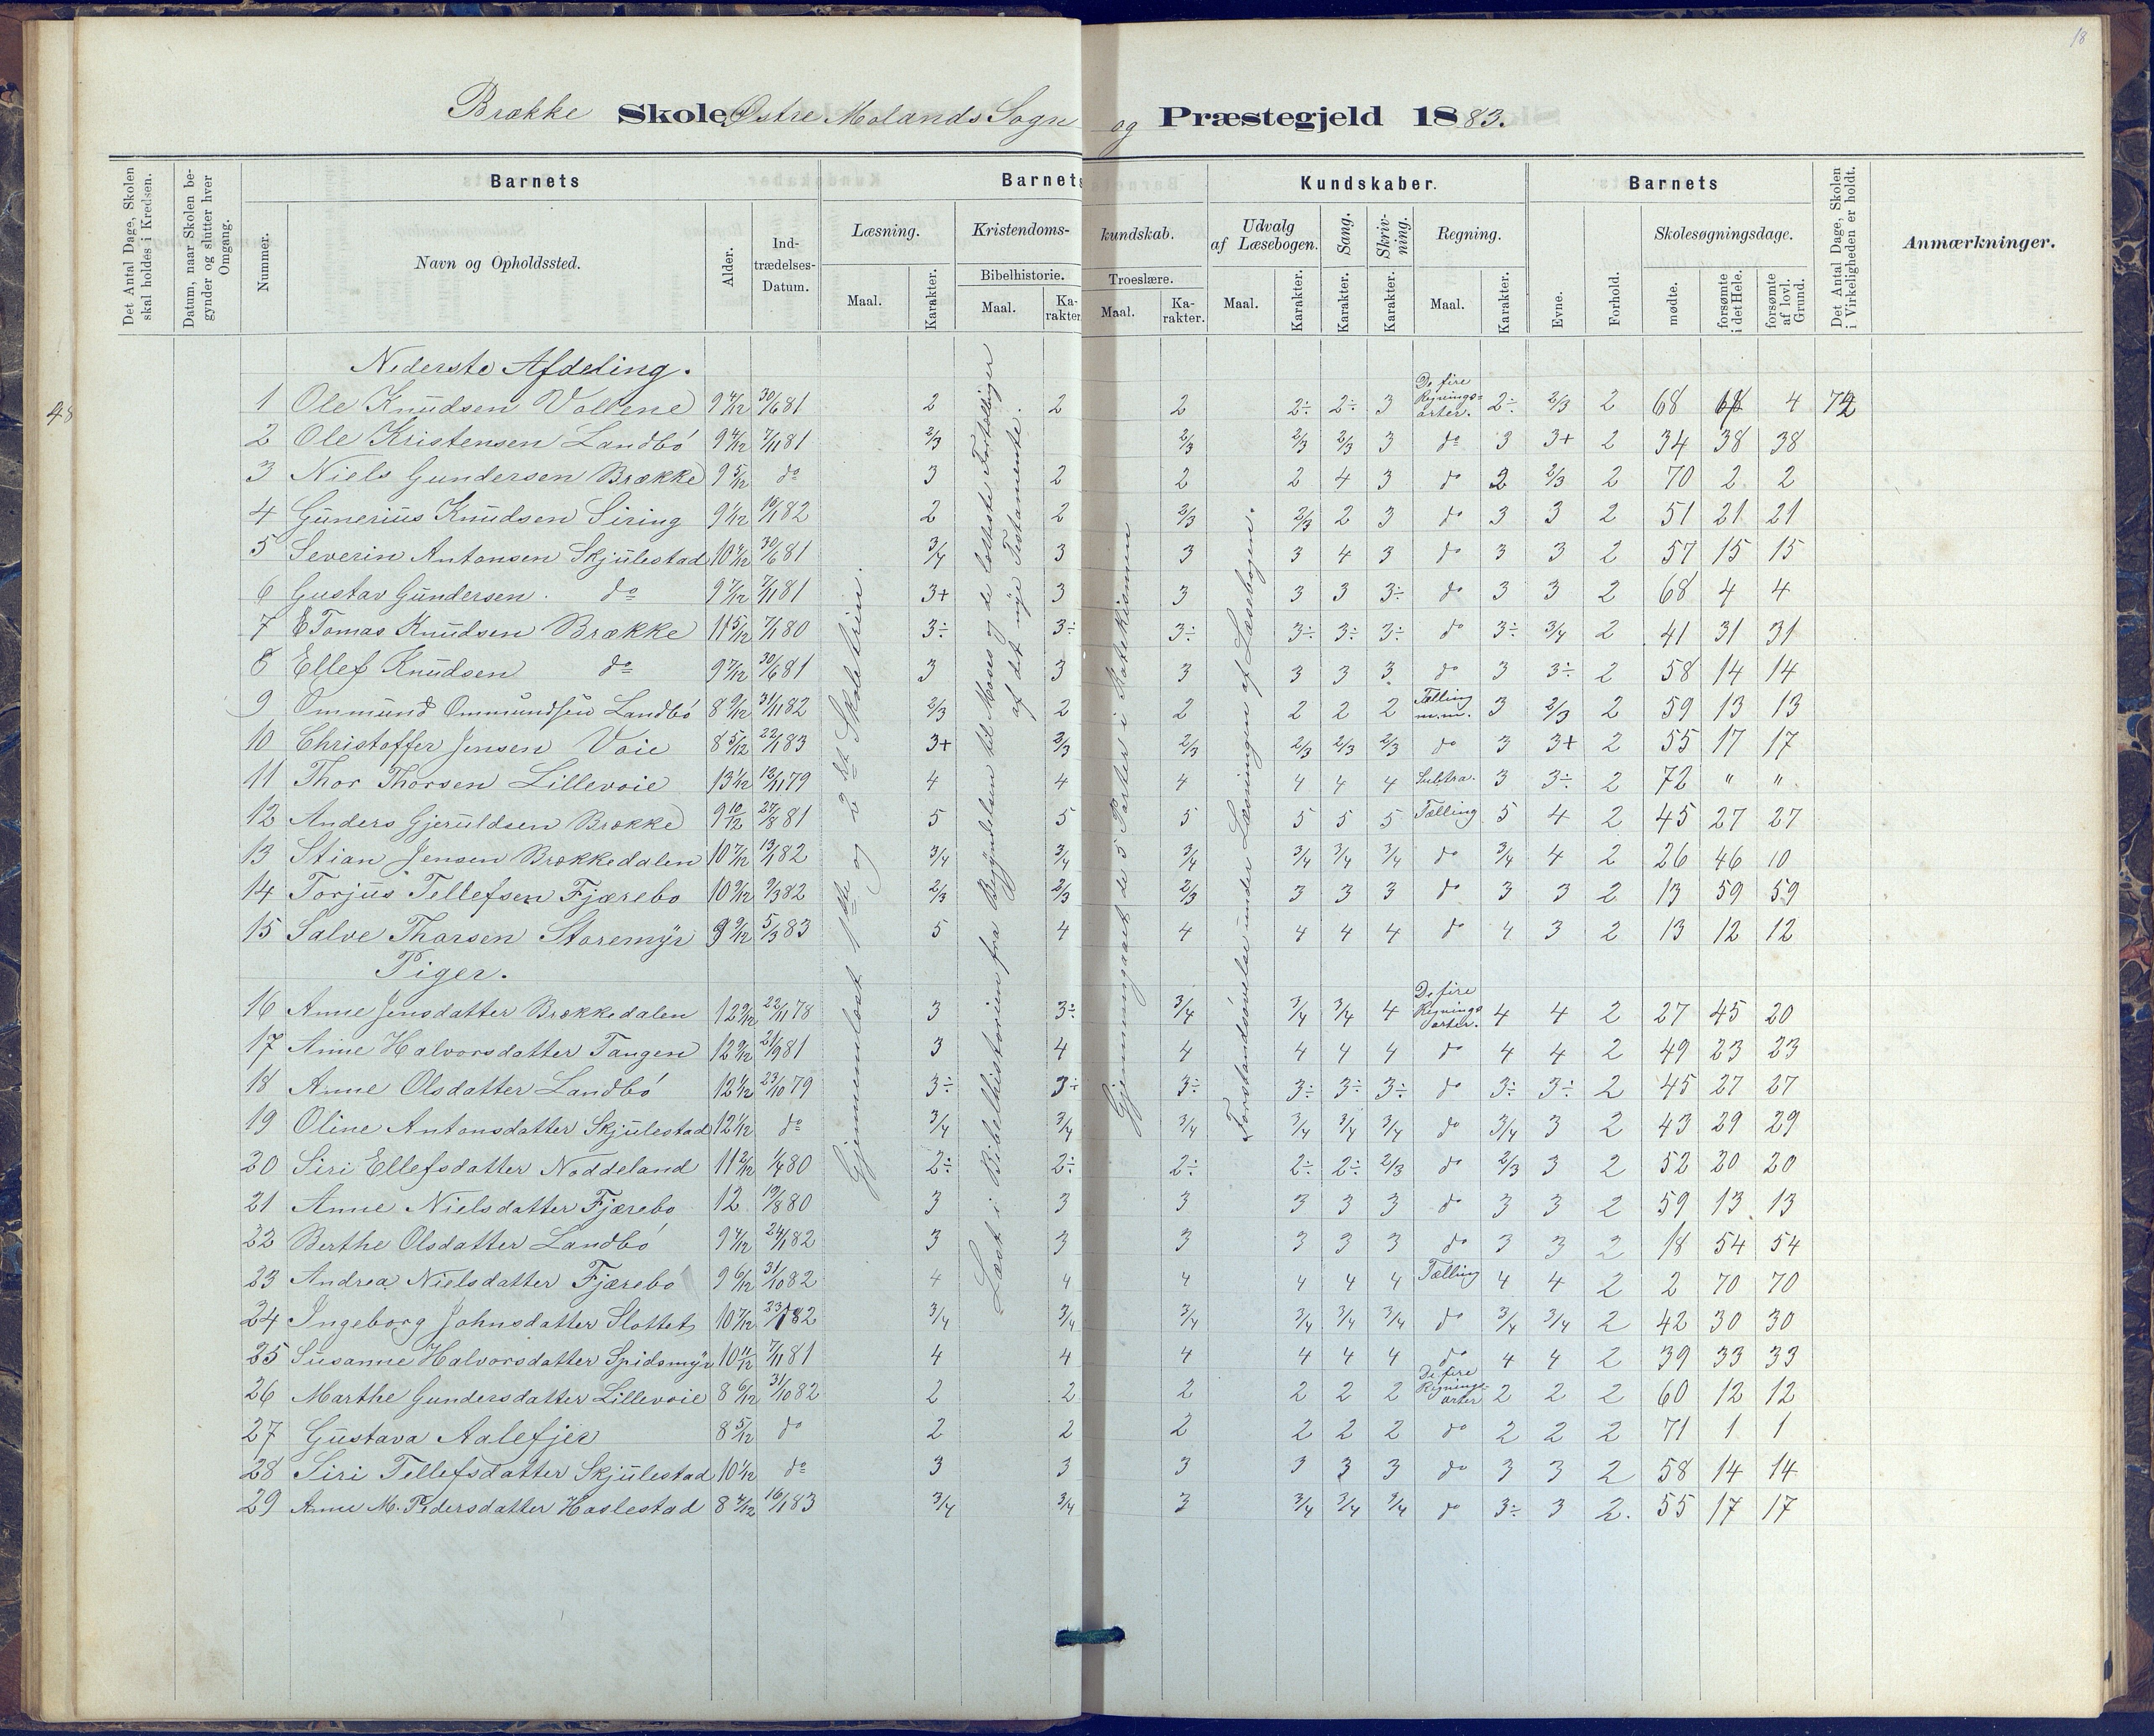 18
48
Brække Skole Østre Molands Sogn og Præstegjeld 1883.
Det Antal Dage, Skolen skal holdes i Kredsen.
Datum, naar Skolen begynder og slutter hver Omgang.
Barnets
Nummer.
Navn og Opholdssted.
Alder.
Indtrædelses-Datum.
Barnets Kundskaber.
Læsning.
Maal.
Karakter.
Kristendomskundskab.
Bibelhistorie.
Maal.
Karakter.
Troeslære.
Maal.
Karakter.
Udvalg af Læsebogen.
Maal.
Karakter.
Sang.
Karakter.
Skrivning.
Karakter.
Regning.
Maal.
Karakter.
Barnets
Evne.
Forhold.
Skolesøgningsdage.
mødte.
forsømte i det Hele.
forsømte af lovl. Grund.
Det Antal Dage, Skolen i Virkeligheden er holdt.
Anmærkninger.
Gjennemlæst 1ste og 2det Skoletrin.
Læst i Bibelhistorien fra Begyndelsen til Moses og de letteste Fortællinger af det nye Testamente.
Gjennemgaaet de 5 Parter i Katekismen
Forstandsøvelse under Læsningen af Læsebogen.
Nederste Afdeling.
1 Ole Knudsen Vollene 9 4/12 30/6 81 2 2 2 2÷ 2÷ 3 De fire Regningsarter. 2÷ 2/3 2 68 4 72
2 Ole Kristensen Landbó 9 4/12 7/11 81 2/3 2/3 2/3 2/3 3 do 3 3+ 2 34 38 38
3 Niels Gundersen Brække 9 5/12 do 3 2 2 2 4 3 do 2 2/3 2 70 2 2
4 Gunerius Knudsen Siring 9 1/12 16/1 82 2 2 2/3 2/3 2 3 do 3 3 2 51 21 21
5 Severin Antonsen Skjulestad 10 4/12 30/6 81 3/4 3 3 3 4 3 do 3 3 2 57 15 15
6 Gustav Gundersen. do 9 7/12 7/11 81 3+ 3 3 3 3 3÷ do 3 3 2 68 4 4
7 E Tomas Knudsen Brække 11 5/12 7/1 80 3÷ 3÷ 3÷ 3÷ 3÷ 3÷ do 3÷ 3/4 2 41 31 31
8 Ellef Knudsen do 9 7/12 30/6 81 3 3 3 3 3 3 do 3 3÷ 2 58 14 14
9 Ommund Ommundsen Landbó 8 9/12 31/1 82 2/3 2 2 2 2 2 Tælling m.m. 3 2/3 2 59 13 13
10 Christoffer Jensen Voie 8 5/12 22/1 83 3+ 2/3 2/3 2/3 2/3 2/3 do 3 3+ 2 55 17 17
11 Thor Thorsen Lillevoie 13 1/12 12/11 79 4 4 4 4 4 4 Subtra. 3 3÷ 2 72 " "
12 Anders Gjeruldsen Brække 9 10/12 27/8 81 5 5 5 5 5 5 Tælling 5 4 2 45 27 27
13 Stian Jensen Brækkedalen 10 7/12 13/1 82 3/4 3/4 3/4 3/4 3/4 3/4 do 3/4 4 2 26 46 10
14 Torjus Tellefsen Fjærebo 10 9/12 9/3 82 2/3 2/3 2/3 3 3 3 do 3 3 2 13 59 59
15 Salve Thorsen Storemyr 9 9/12 5/3 83 5 4 4 4 4 4 do 4 3 2 13 12 12
Piger.
16 Anne Jensdatter Brækkedalen 12 9/12 22/11 78 3 3÷ 3/4 3/4 3/4 4 De fire Regningsarter. 4 4 2 27 45 20
17 Anne Halvorsdatter Tangen 12 9/12 21/9 81 3 4 4 4 4 4 do 4 4 2 49 23 23
18 Anne Olsdatter Landbó 12 1/12 23/10 79 3÷ 3÷ 3÷ 3÷ 3÷ 3÷ do 3÷ 3÷ 2 45 27 27
19 Oline Antonsdatter Skjulestad 12 1/12 do 3/4 3/4 3/4 3/4 3/4 3/4 do 3/4 3 2 43 29 29
20 Siri Ellefsdatter Noddeland 11 2/12 1/4 80 2÷ 2÷ 2÷ 2÷ 2÷ 2/3 do 2/3 3 2 52 20 20
21 Anne Nielsdatter Fjærebo 12 19/8 80 3 3 3 3 3 3 do 3 3 2 59 13 13
22 Berthe Olsdatter Landbó 9 4/12 24/1 82 3 3 3 3 3 3 do 3 3 2 18 54 54
23 Andrea Nielsdatter Fjærebo 9 6/12 31/10 82 4 4 4 4 4 4 Tælling 4 4 2 2 70 70
24 Ingeborg Johnsdatter Slottet 10 7/12 23/1 82 3/4 3/4 3/4 3/4 3/4 3/4 do 3/4 3/4 2 42 30 30
25 Susanne Halvorsdatter Spidsmyr 10 11/12 7/11 81 4 4 4 4 4 4 do 4 4 2 39 33 33
26 Marthe Gundersdatter Lillevoie 8 6/12 31/10 82 2 2 2 2 2 2 De fire Regningsarter 2 2 2 60 12 12
27 Gustava Aalefjer 8 5/12 do 2 2 2 2 2 2 do 2 2 2 71 1 1
28 Siri Tellefsdatter Skjulestad 10 1/12 do 3 3 3 3 3 3 do 3 3 2 58 14 14
29 Anne M. Pedersdatter Haslestad 8 4/12 16/1 83 3/4 3/4 3 3/4 3/4 3/4 do 3÷ 3 2. 55 17 17